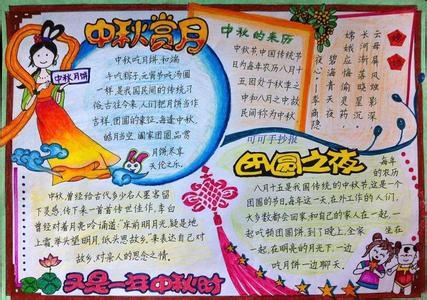 中秋赏月
中秋月饼
中秋吃月饼,和端
午吃粽子,元宵节吃汤圆
一样,是我国民间的传统习
俗,古往今来,人们把月饼当作
吉祥、团圆的象征,每逢中秋,
皓月当空,阖家团圆品
月饼,尽享
天伦乐。
中秋的来历
中秋节,中国传统节
日,为每年农历八月十
五,因处于秋季之
中和八月之中,故
民间称为中秋
诗词
云母屏风烛影深
长河渐落晓星沉
嫦娥应悔偷灵药
碧海青天夜
夜心——李商隐
可可手抄报
团圆之夜
每年
的农历
八月十五是我国传统的中秋节,这是一个
团圆的节日,每年这一天,在外工作的人们,
大多数都会回家,和自己的家人在一起,一
起吃顿团圆饼,到了晚上,全家坐在
一起,在明亮的月光下,一边
吃月饼一边聊天。
中秋,曾经给古代多少名人墨客留
下灵感,传下来一首首传世佳作,李白
曾经对着月亮吟诵道:“床前明月光,疑是地
上霜,举头望明月,低头思故乡。”来表达自己对
故乡,对亲人的思念之情。
又是一年中秋时